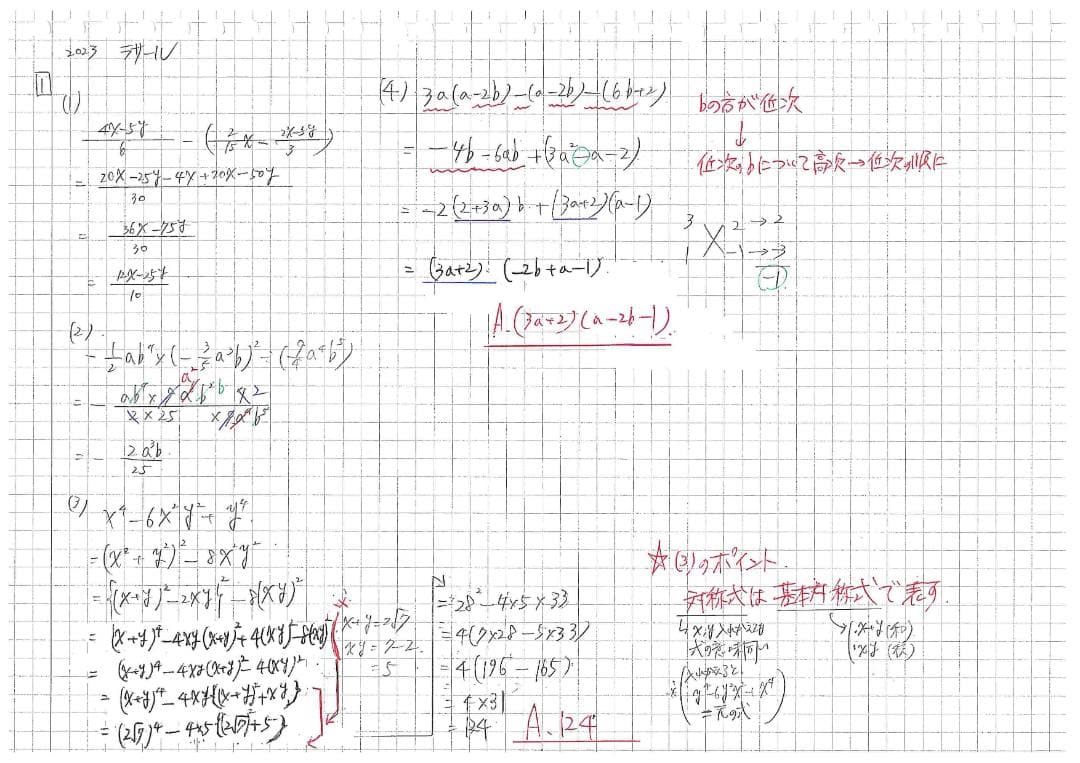 2023 ラサール
1
(1)
(4x-5y)/6 - (2/15 x - (2x-5y)/3)
= (20x-25y-4x+20x-50y)/30
= (36x-75y)/30
= (12x-25y)/10
(2)
-1/2 ab⁴×(-3/5 a³b)²÷(9/4 a⁴b⁵)
= - 2a³b/25
(3) x⁴-6x²y²+y⁴
=(x²+y²)²-8x²y²
={(x+y)²-2xy}²-8(xy)²
=(x+y)⁴-4xy(x+y)²+4(xy)²-8(xy)²
=(x+y)⁴-4xy(x+y)²-4(xy)²
=(x+y)⁴-4xy{(x+y)²+xy}
=(2√7)⁴-4×5{(2√7)²+5}
※
x+y=2√7
xy=7-2
=5
=28²-4×5×33
=4(7×28-5×33)
=4(196-165)
=4×31
=124
A.124
(4) 3a(a-2b)-(a-2b)-(6b+2)
= -4b-6ab+(3a²-a-2)
= -2(2+3a)b+(3a+2)(a-1)
= (3a+2)(-2b+a-1)
A.(3a+2)(a-2b-1)
bの方が低次
↓
低次のbについて高次→低次の順に
3 2→2
1 -1→-3
-1
☆(3)のポイント
対称式は基本対称式で表す.
x,y入れかえても
式の意味同じ
x+y(和)
xy(積)
※(入れかえると
y⁴-6y²x²+x⁴
=元の式)